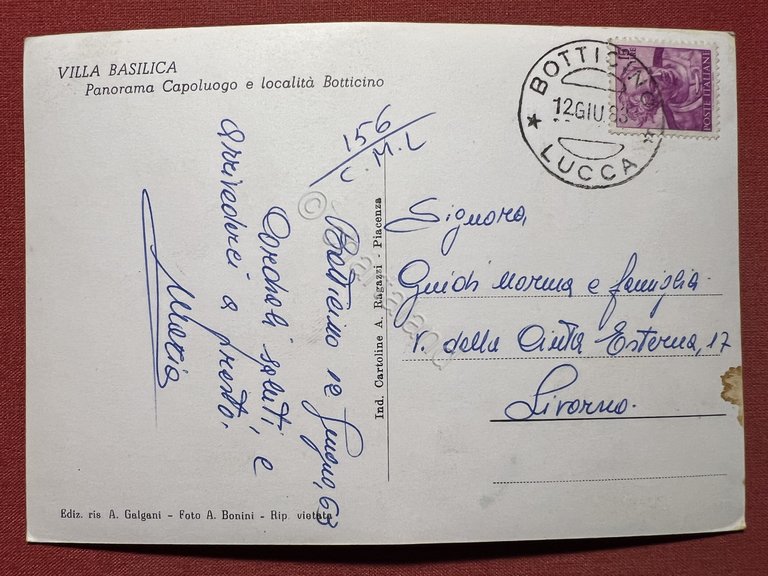 VILLA BASILICA
Panorama Capoluogo e località Botticino
156
C.M.L
Botticino 12 Giugno, 63
Cordiali saluti, e
arrivederci a presto,
Maria
Ind. Cartoline A. Ragazzi - Piacenza
BOTTICINO
12 GIU. 63
LUCCA
POSTE ITALIANE
Signora,
Guidi Norma e famiglia
V. della Cinta Esterna, 17
Livorno.
Ediz. ris A. Galgani - Foto A. Bonini - Rip. vietata